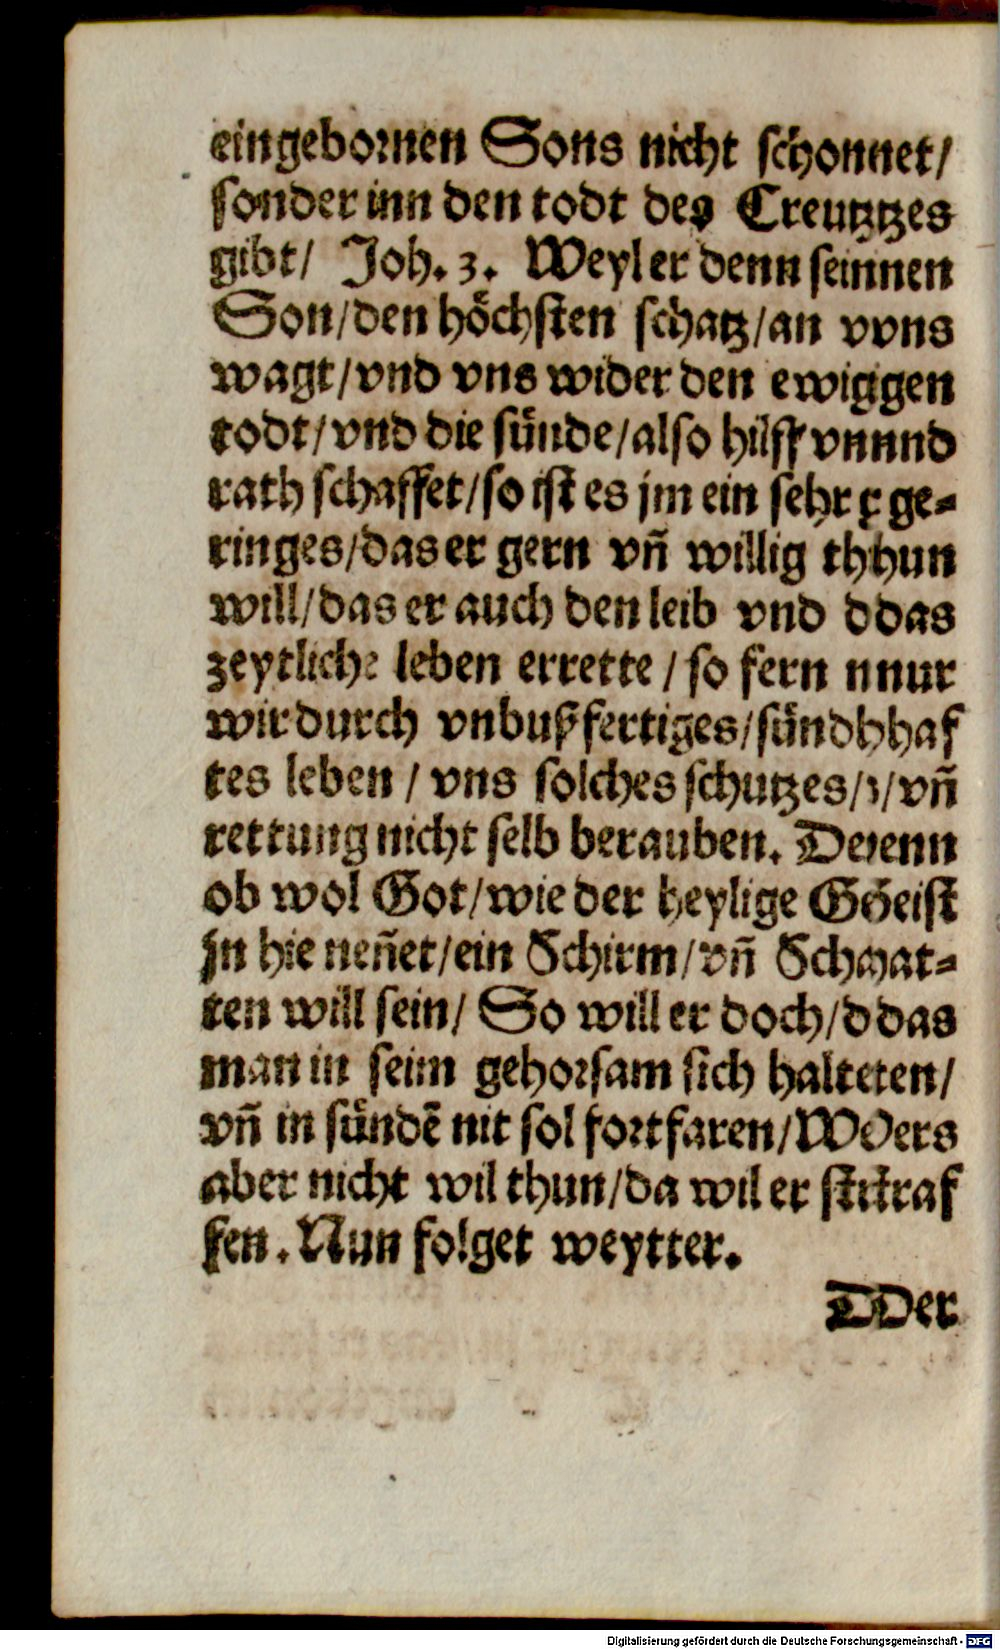 eingebornen Sons nicht schonnet/
sonder inn den todt des Creutztzes
gibt/ Joh. 3. Weyl er denn seinnen
Son/den höchsten schatz/an vvns
wagt/vnd vns wider den ewiggen
todt/vnd die sünde/also hilff vnnnd
rath schaffet/so ist es jm ein sehr r ge-
ringes/das er gern vñ willig thhun
will/das er auch den leib vnd ddas
zeytliche leben errette/so fern nnur
wir durch vnbußfertiges/sündhhaf
tes leben/vns solches schutzes/vñ
rettung nicht selb berauben. Deenn
ob wol Got/wie der heylige GGeist
jn hie neñet/ein Schirm/vñ Schat-
ten will sein/ So will er doch/ddas
man in seim gehorsam sich halteten/
vñ in sündẽ nit sol fortfaren/Wers
aber nicht wil thun/da wil er straf
fen. Nun folget weytter.
DDer
Digitalisierung gefördert durch die Deutsche Forschungsgemeinschaft - DFG